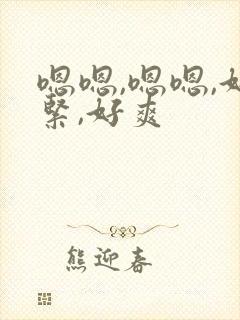 嗯嗯,嗯嗯,好
紧,好爽
熊迎春